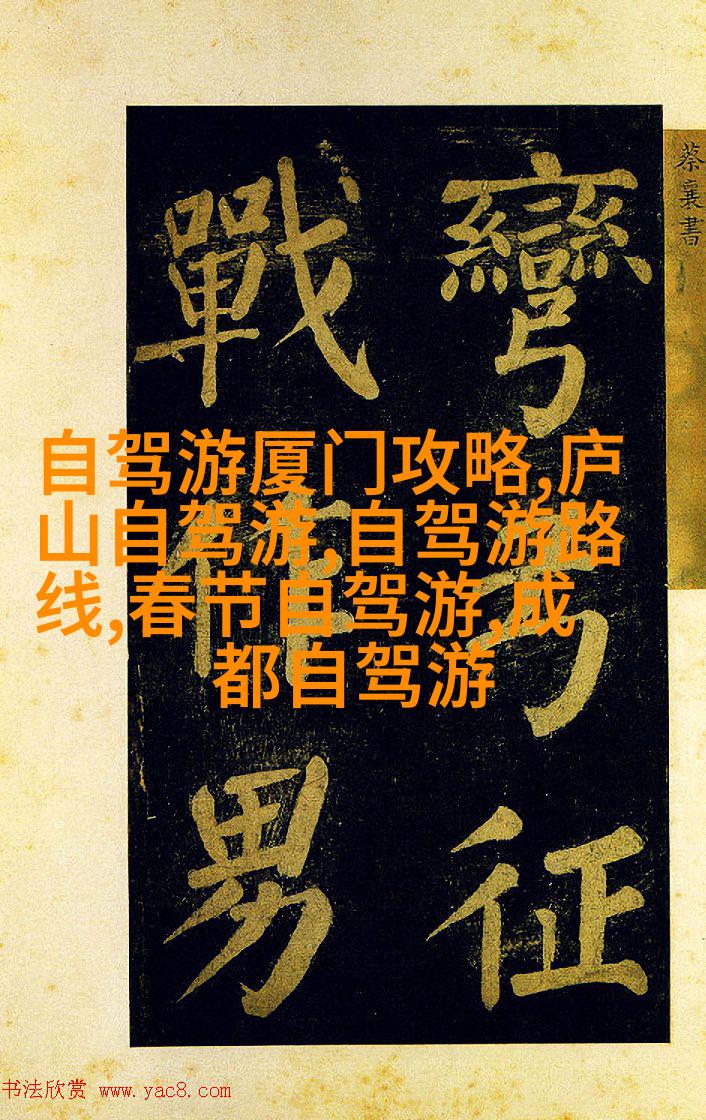 蔡襄書
彎弓征
戰作男
自驾游厦门攻略,庐
山自驾游,自驾游路
线,春节自驾游,成
都自驾游
书法欣赏 www.yac8.com